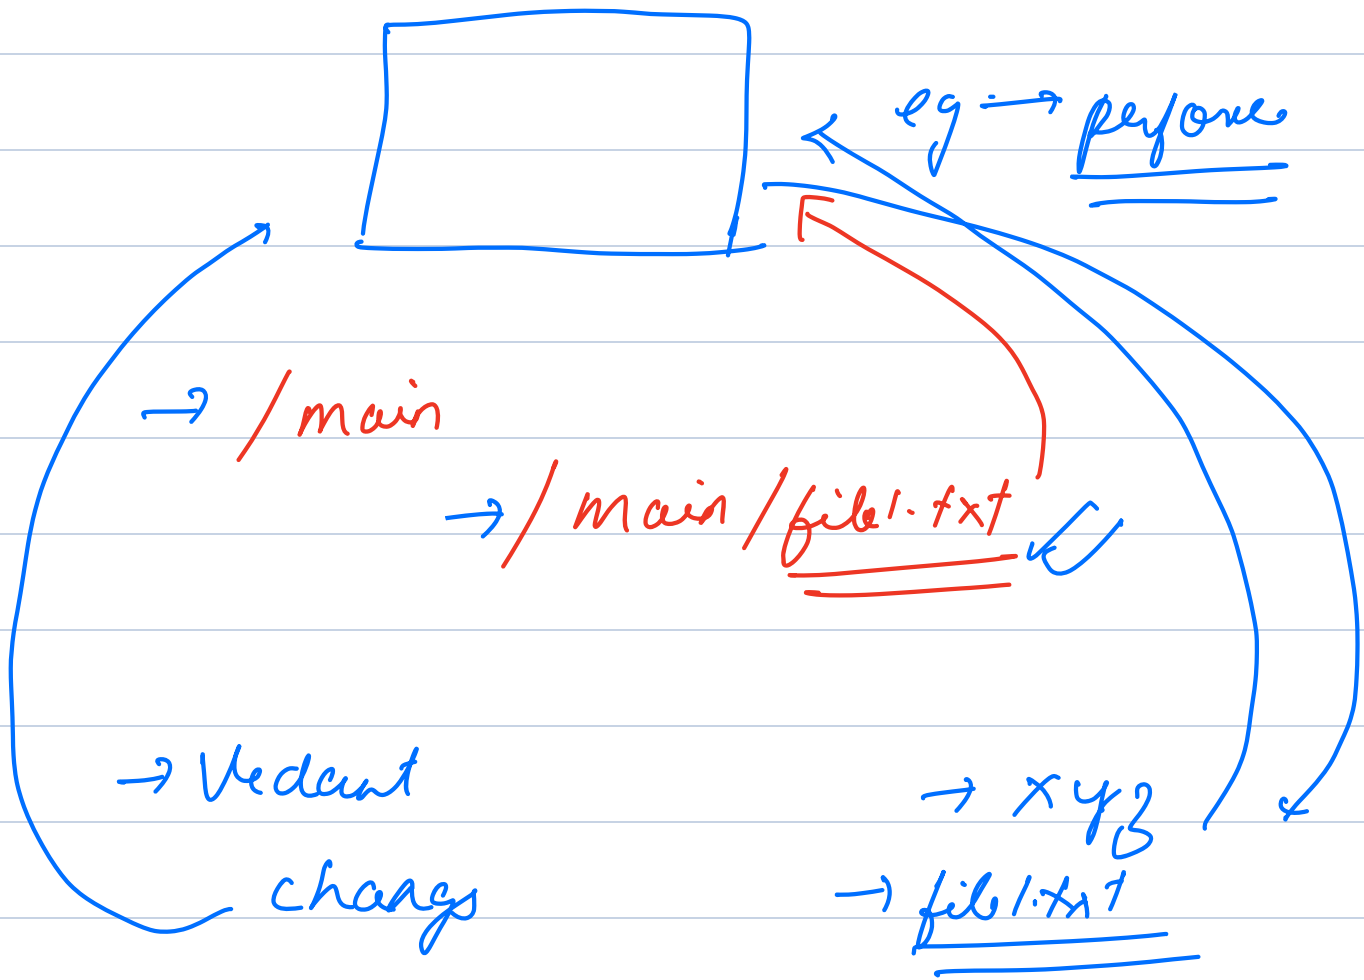 eg → perforce
→ /main
→ /main/file1.txt
→ Vedant
→ xyz
changs
→ file1.txt